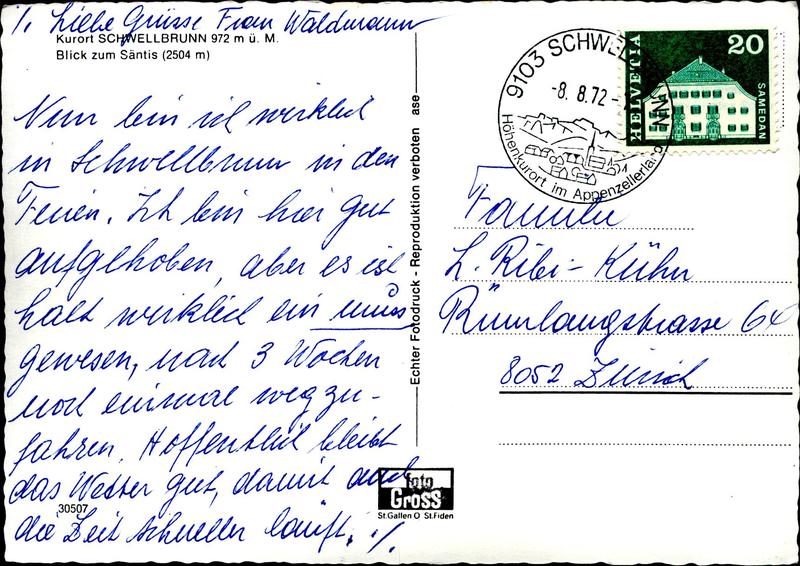 ./. Liebe Grüsse Frau Waldmann
Kurort SCHWELLBRUNN 972 m ü. M.
Blick zum Säntis (2504 m)
Nun bin ich wirklich
in Schwellbrunn in den
Ferien. Ich bin hier gut
aufgehoben, aber es ist
halt wirklich ein muss
gewesen, nach 3 Wochen
noch einmal weg zu-
fahren. Hoffentlich bleibt
das Wetter gut, damit auch
die Zeit schneller läuft. ./.
30507
Echter Fotodruck - Reproduktion verboten ase
foto
Gross
St.Gallen O St.Fiden
9103 SCHWELLBRUNN
-8. 8.72-
Höhenkurort im Appenzellerland
HELVETIA
20
SAMEDAN
Familie
L. Ribi-Kühn
Rümlangstrasse 64
8052 Zürich